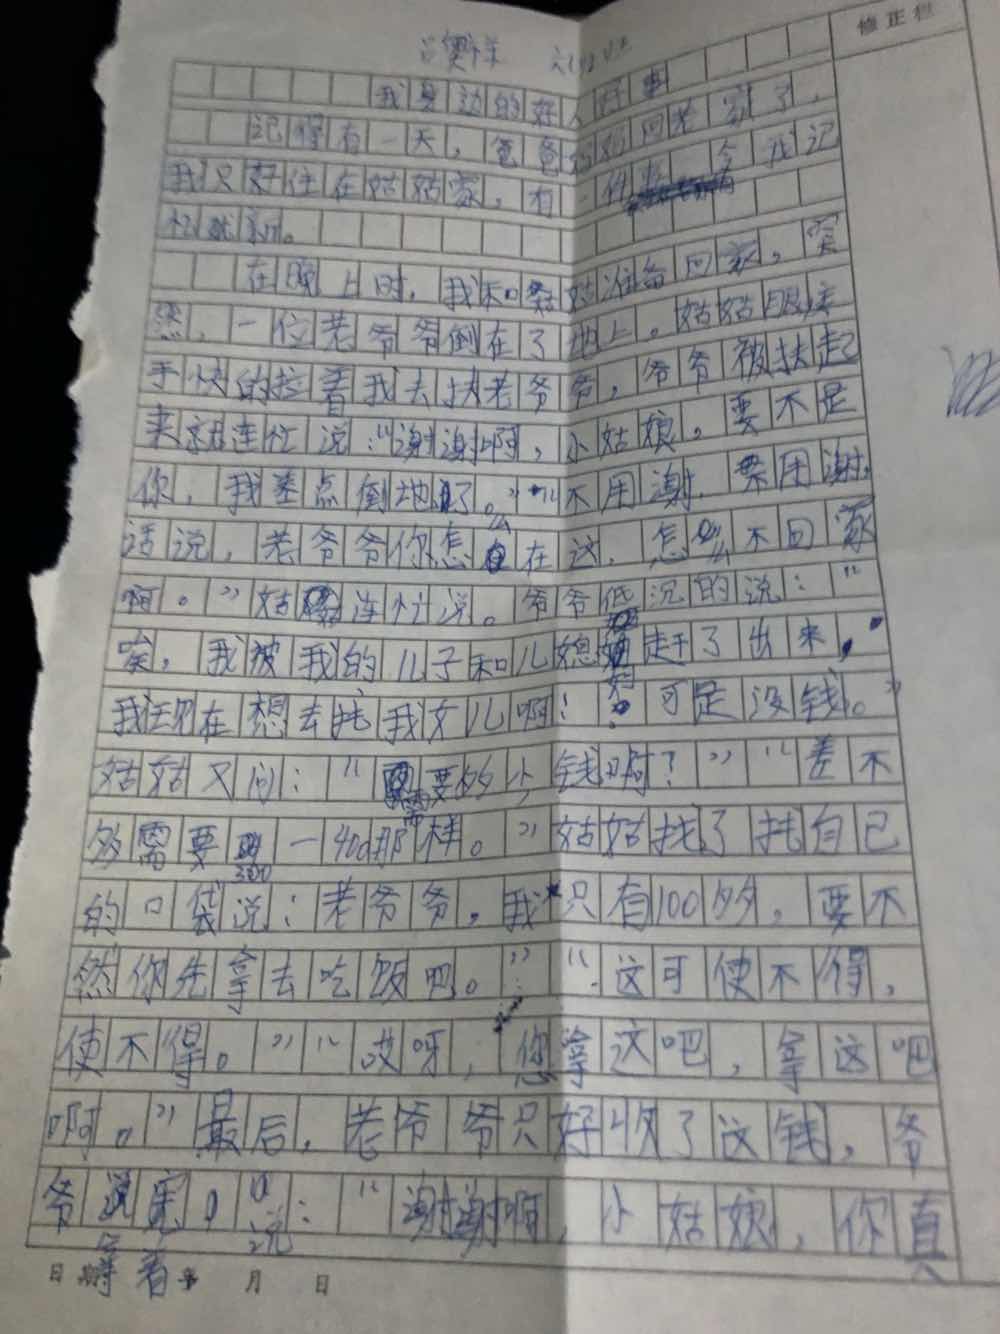 修正栏
我身边的好人好事
记得有一天，爸爸妈妈回老家了，
我只好住在姑姑家，有一件事 令我记
忆就新。
在晚上时，我和姑姑准备回家，突
然，一位老爷爷倒在了地上。姑姑眼疾
手快的拉着我去扶老爷爷，爷爷被扶起
来就连忙说：“谢谢啊，小姑娘，要不是
你，我差点倒地了。”“不用谢，不用谢，
话说，老爷爷你怎么在这，怎么不回家
啊。”姑姑连忙说。爷爷低沉的说：“
唉，我被我的儿子和儿媳赶了出来，
我现在想去找我女儿啊！可是没钱。”
姑姑又问：“需要多少钱啊？”“差不
多需要300一400那样。”姑姑找了找自己
的口袋说：老爷爷，我只有100多，要不
然你先拿去吃饭吧。”“这可使不得，
使不得。”“哎呀，您拿这吧，拿这吧
啊。”最后，老爷爷只好收了这钱，爷
爷 说：“谢谢啊，小姑娘，你真
日期 年 月 日